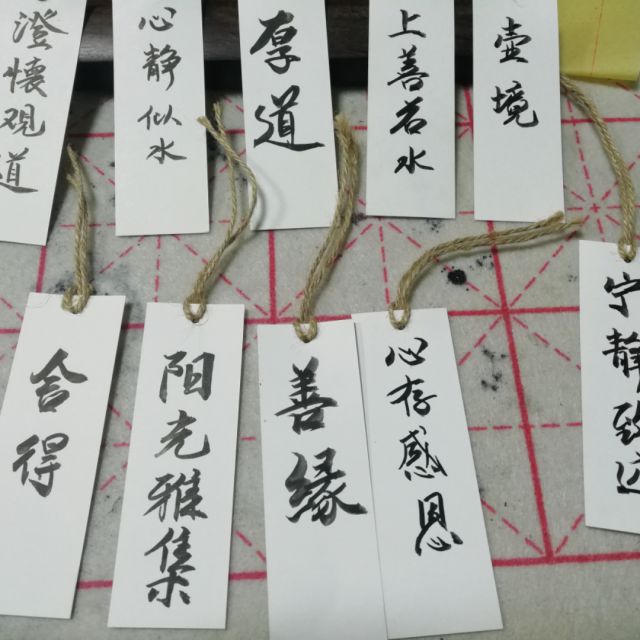 澄懷观道
心静似水
厚道
上善若水
壶境
舍得
阳光雅集
善缘
心存感恩
宁静致远